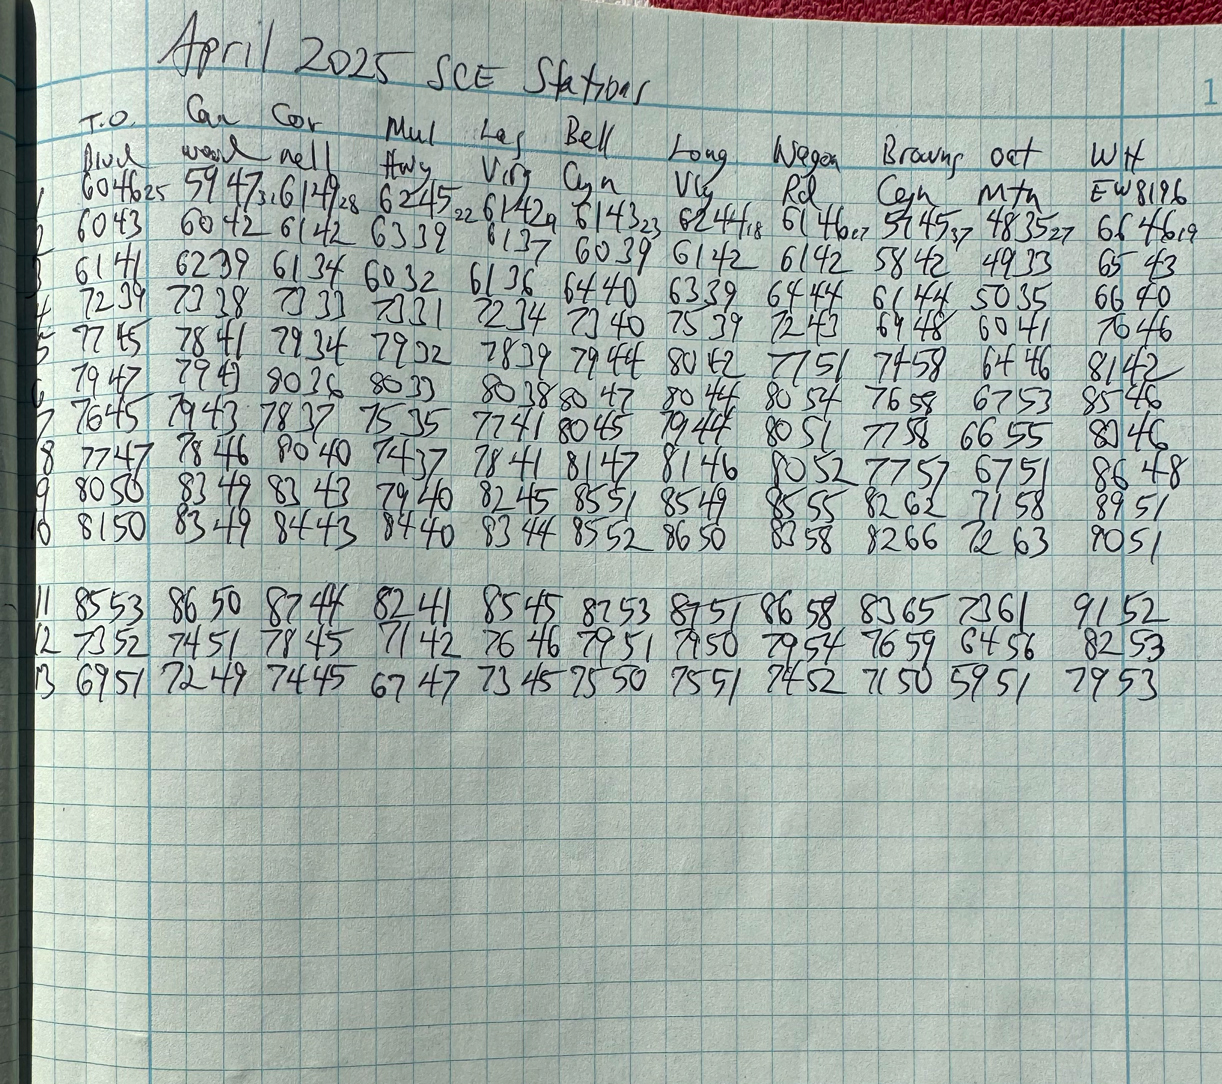 April 2025 SCE Stations
1
T.O. Can Cor Mul Las Bell Long Wagon Browns Oat WH
Blvd wood nell Hwy Virg Cyn Vly Rd Cyn Mtn EW8196
1 6046 25 5947 31 6149 28 6245 22 6142 29 6143 23 6244 18 6146 27 5945 37 4835 27 6646 19
2 6043 6042 6142 6339 6137 6039 6142 6142 5842 4933 6543
3 6141 6239 6134 6032 6136 6440 6339 6444 6144 5035 6640
4 7239 7338 7333 7331 7234 7340 7539 7243 6948 6041 7646
5 7745 7841 7934 7932 7839 7944 8042 7751 7458 6446 8142
6 7947 7943 8036 8033 8038 8047 8044 8054 7658 6753 8546
7 7645 7943 7837 7535 7741 8045 7944 8051 7758 6655 8046
8 7747 7846 8040 7437 7841 8147 8146 8052 7757 6751 8648
9 8050 8349 8343 7940 8245 8551 8549 8555 8262 7158 8951
10 8150 8349 8443 8440 8344 8552 8650 8358 8266 7263 9051
11 8553 8650 8744 8241 8545 8753 8751 8658 8365 7361 9152
12 7352 7451 7845 7142 7646 7951 7950 7954 7659 6456 8253
13 6951 7249 7445 6747 7345 7550 7551 7452 7150 5951 7953